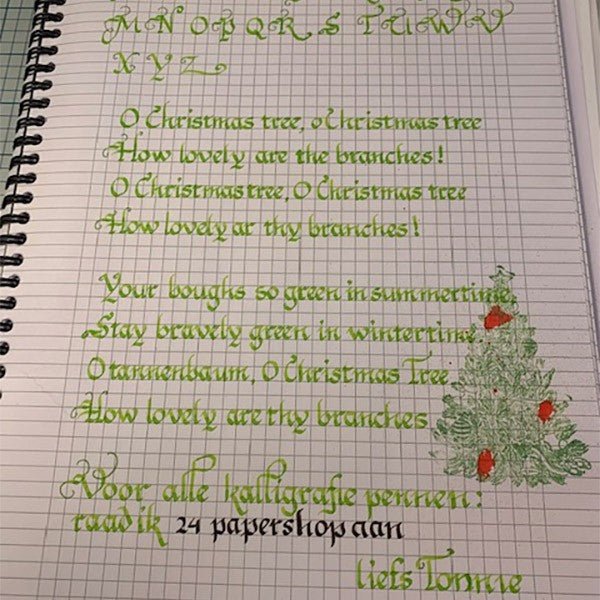 M N O P Q R S T U W V
X Y Z
O Christmas tree, o Christmas tree
How lovely are the branches!
O Christmas tree, O Christmas tree
How lovely ar thy branches!
Your boughs so green in summertime,
Stay bravely green in wintertime.
O tannenbaum, O Christmas Tree
How lovely are thy branches
Voor alle kalligrafie pennen:
raad ik 24 papershop aan
liefs Tonnie